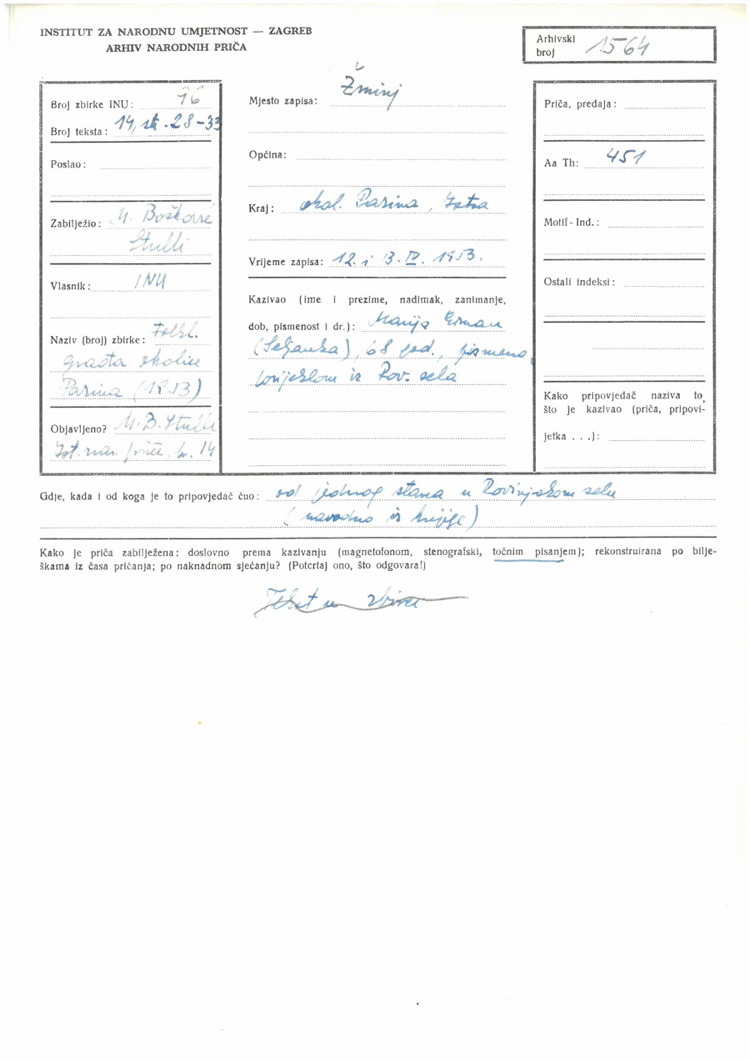 INSTITUT ZA NARODNU UMJETNOST — ZAGREB
ARHIV NARODNIH PRIČA
Arhivski broj 1564
Broj zbirke INU: 76
Broj teksta: 14, str. 28-33
Poslao:
Zabilježio: M. Bošković
Stulli
Vlasnik: INU
Naziv (broj) zbirke: Folkl.
građa okolice
Pazina (1953)
Objavljeno? M. B. Stulli
Ist. nar. priče, br. 14
Mjesto zapisa: Žminj
Općina:
Kraj: okol. Pazina, Istra
Vrijeme zapisa: 12. i 13. IV. 1953.
Kazivao (ime i prezime, nadimak, zanimanje,
dob, pismenost i dr.): Marija Erman
(Seljanka), 68 god., pismena,
porijeklom iz Rov. sela
Priča, predaja:
Aa Th: 451
Motif - Ind.:
Ostali indeksi:
Kako pripovjedač naziva to,
što je kazivao (priča, pripovi-
jetka . . .):
Gdje, kada i od koga je to pripovjedač čuo: od jednog stana u Rovinjskom selu
(navodno iz knjige)
Kako je priča zabilježena: doslovno prema kazivanju (magnetofonom, stenografski, točnim pisanjem); rekonstruirana po bilje-
škama iz časa pričanja; po naknadnom sjećanju? (Potcrtaj ono, što odgovara!)
Tekst u zbirci